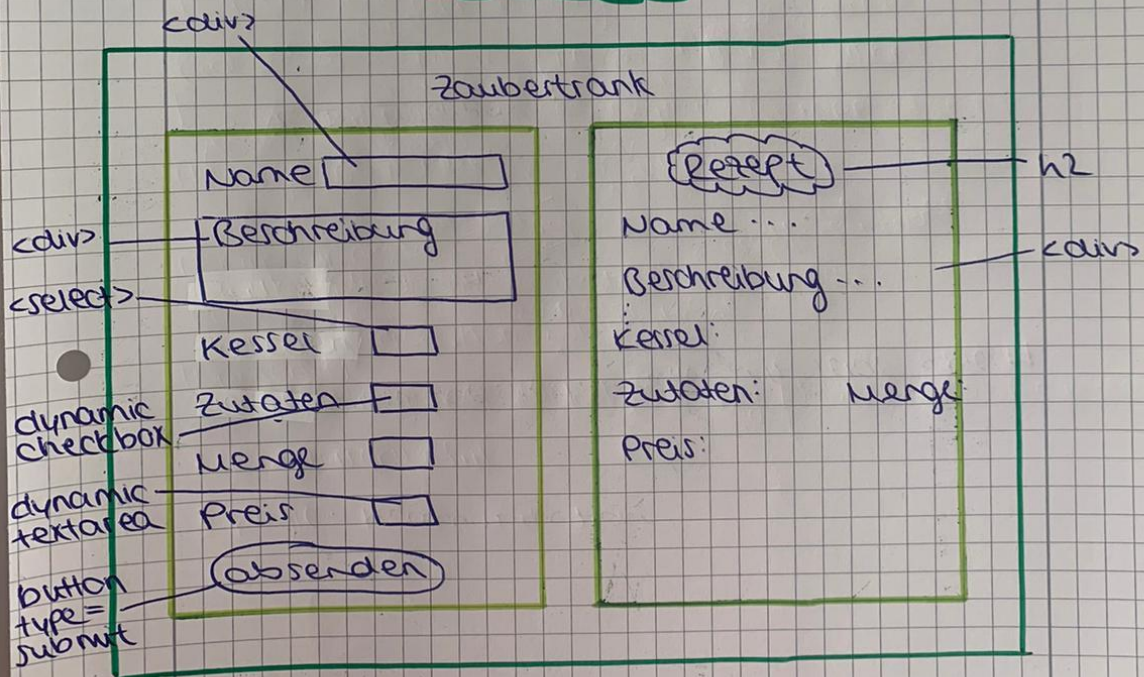 <div>
Zaubertrank
Name
<div>
Beschreibung
<select>
Kessel
dynamic
checkbox
Zutaten
Menge
dynamic
textarea
Preis
button
type=
submit
absenden
Rezept
h2
Name ...
Beschreibung ...
<div>
Kessel:
Zutaten: Menge:
Preis: